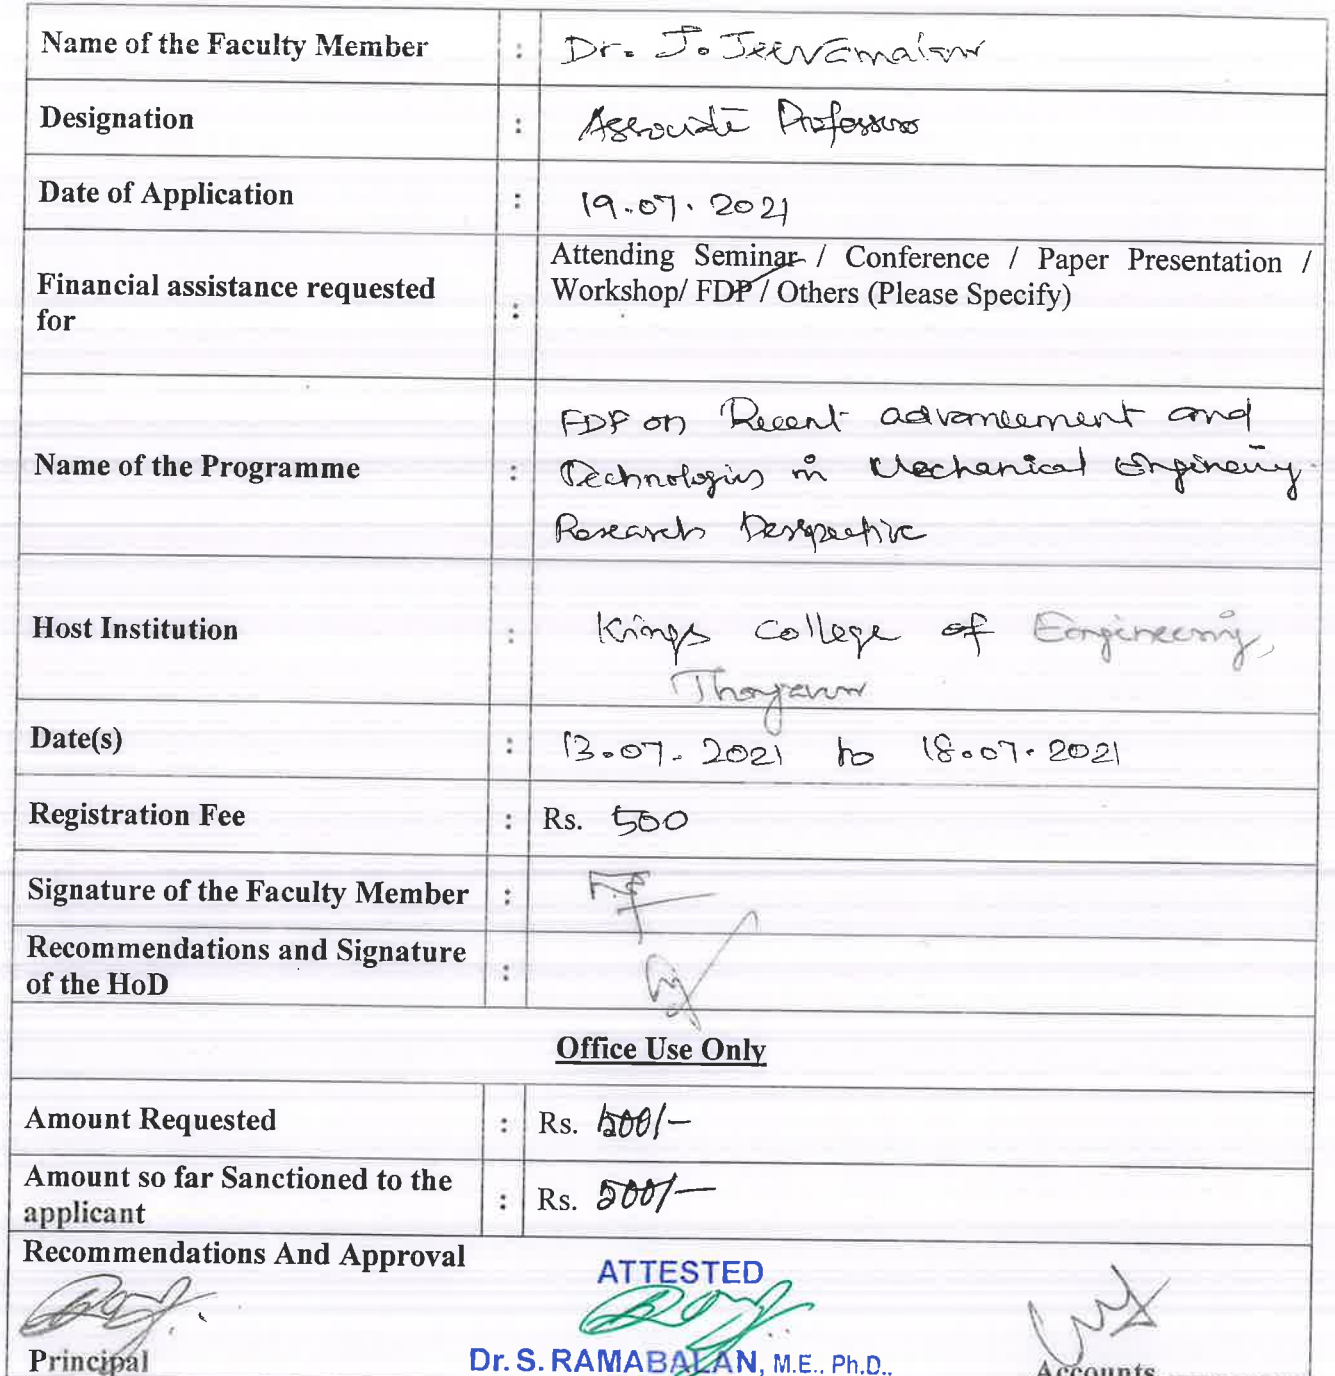 Name of the Faculty Member : Dr. J. Jeevamalar
Designation : Associate Professor
Date of Application : 19.07.2021
Attending Seminar / Conference / Paper Presentation /
Financial assistance requested for : Workshop/ FDP / Others (Please Specify)
FDP on Recent advancement and
Name of the Programme : Technologies in Mechanical Engineering
Research Perspective
Host Institution : Kings College of Engineering,
Thanjavur
Date(s) : 13.07.2021 to 18.07.2021
Registration Fee : Rs. 500
Signature of the Faculty Member :
Recommendations and Signature
of the HoD :
Office Use Only
Amount Requested : Rs. 500/-
Amount so far Sanctioned to the
applicant : Rs. 500/-
Recommendations And Approval
ATTESTED
Principal Dr. S. RAMABALAN, M.E., Ph.D., Accounts